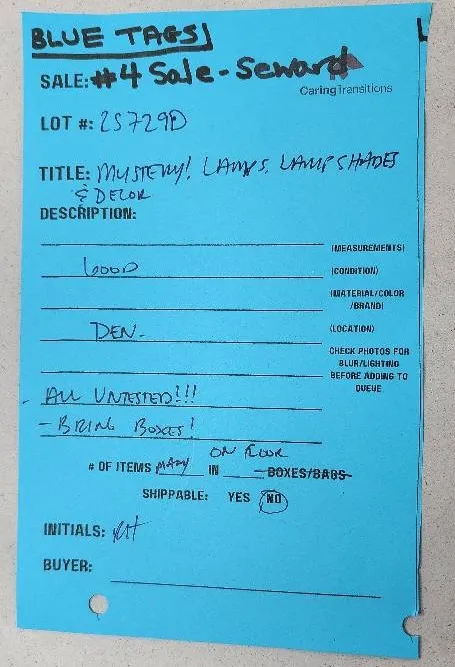 BLUE TAGS
SALE: #4 Sale - Seward
CaringTransitions
LOT #: 2S729D
TITLE: MYSTERY! LAMPS, LAMP SHADES
& DECOR
DESCRIPTION:
(MEASUREMENTS)
GOOD (CONDITION)
(MATERIAL/COLOR
/BRAND)
DEN. (LOCATION)
CHECK PHOTOS FOR
BLUR/LIGHTING
BEFORE ADDING TO
QUEUE
- ALL UNTESTED!!!
- BRING BOXES!
ON FLOOR
# OF ITEMS MANY IN BOXES/BABS
SHIPPABLE: YES NO
INITIALS: RH
BUYER: